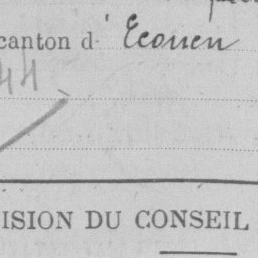 canton d' Ecouen
44
ISION DU CONSEIL